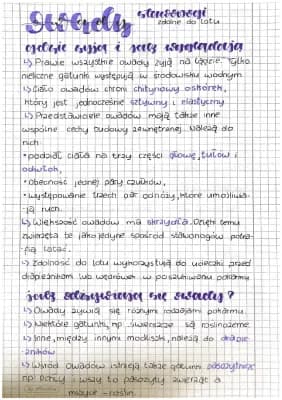 Owady stawonogi
zdolne do lotu
gdzie żyją i jak wyglądają
↳ Prawie wszystkie owady żyją na lądzie. Tylko
nieliczne gatunki występują w środowisku wodnym.
↳ Ciało owadów chroni chitynowy oskórek,
który jest jednocześnie sztywny i elastyczny
↳ Przedstawiciele owadów mają także inne
wspólne cechy budowy zewnętrznej. Należą do
nich:
•podział ciała na trzy części głowę, tułów i
odwłok,
•obecność jednej pary czułków,
•występowanie trzech par odnóży, które umożliwia-
ją ruch.
↳ Większość owadów ma skrzydła. Dzięki temu
zwierzęta te jako jedyne spośród stawonogów potra-
fią latać.
↳ Zdolność do lotu wykorzystują do ucieczki przed
drapieżnikam lub wędrówek w poszukiwaniu pokarmu
jak odżywiają się owady?
↳ Owady żywią się różnymi rodzajami pokarmu.
↳ Niektóre gatunki, np. świerszcze są roślinożerne.
↳ Inne, między innymi modliszki, należą do drapie-
żników
↳ Wśród owadów istnieją także gatunki pasożytnicze
np. pchły i wszy to pasożyty zwierząt a
mszyce -roślin.